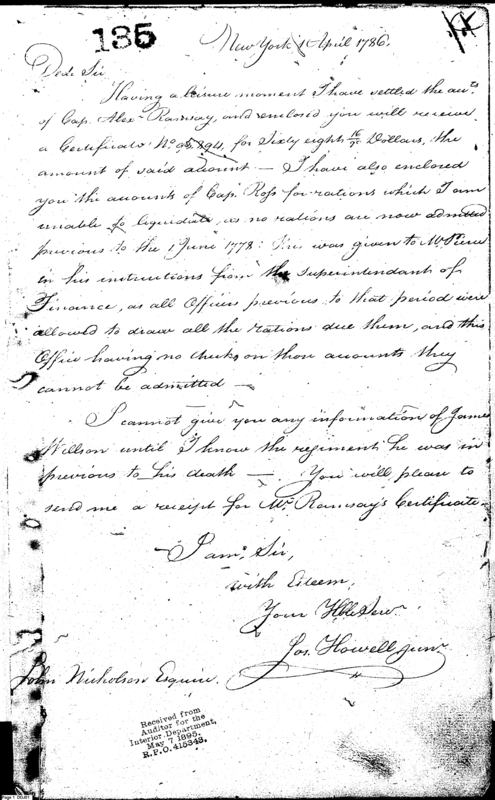 186
New York 1 April 1786.
Dear Sir
Having a leisure moment I have settled the accts
of Cap. Alexr Ramsay, and enclosed you will receive
a Certificate No. 894, for Sixty eight Dollars, the
amount of said account — I have also enclosed
you the accounts of Cap. Ross for rations which I am
unable to liquidate, as no rations are now admitted
previous to the 1 June 1778: this was given to Mr. Pierce
in his instructions from the Superintendant of
Finance, as all Officers previous to that period were
allowed to draw all the rations due them, and this
Office having no checks on those accounts they
cannot be admitted —
I cannot give you any information of James
Willson until I know the regiment he was in
previous to his death — You will please to
send me a receipt for Mr. Ramsay's Certificate.
I am, Sir,
with Esteem,
Your Hble Servt
Jos. Howell junr.
John Nicholson Esquire.
Received from
Auditor for the
Interior Department,
May 7 1895.
R.P.O. 415343.